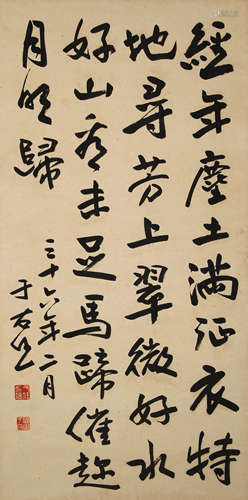 經年塵土滿征衣特
地尋芳上翠微好水
好山看未足馬蹄催趁
月明歸
三十六年二月
于右任